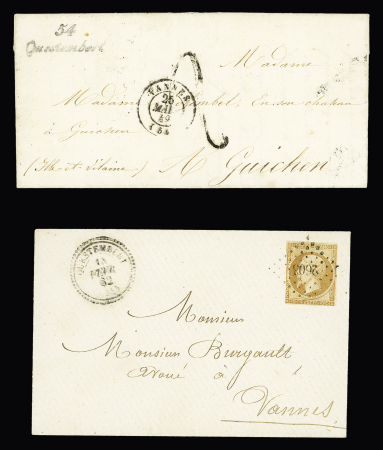 54
Questembert
VANNES
25
MAI
49
(54)
2
Madame
Madame en son château
à Guichen
(Ille et vilaine) A Guichen
QUESTEMBERT
18
FEVR
62
Monsieur
Monsieur Burgault
avoué à
Vannes